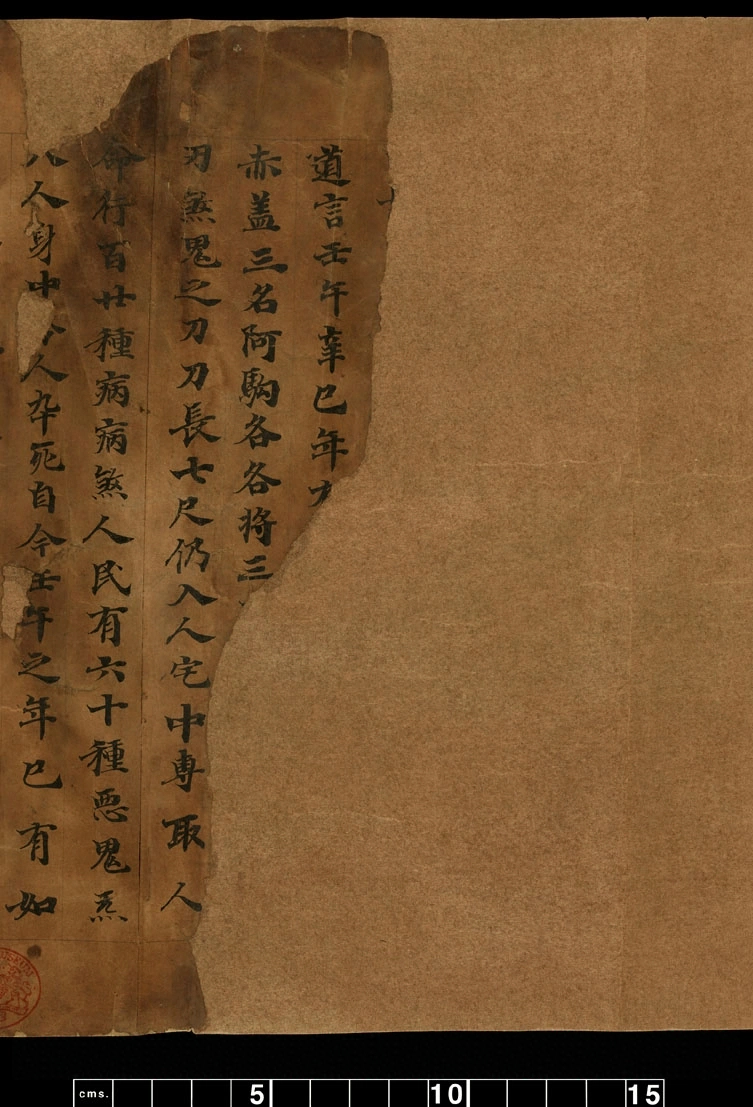 道言壬午辛巳年
赤盖三名阿駒各各将三
刃煞鬼之刀刀長七尺仍入人宅中專取人
命行百廿種病病煞人民有六十種惡鬼炁
人身中人卒死自今壬午之年已有如
cms. 5 10 15